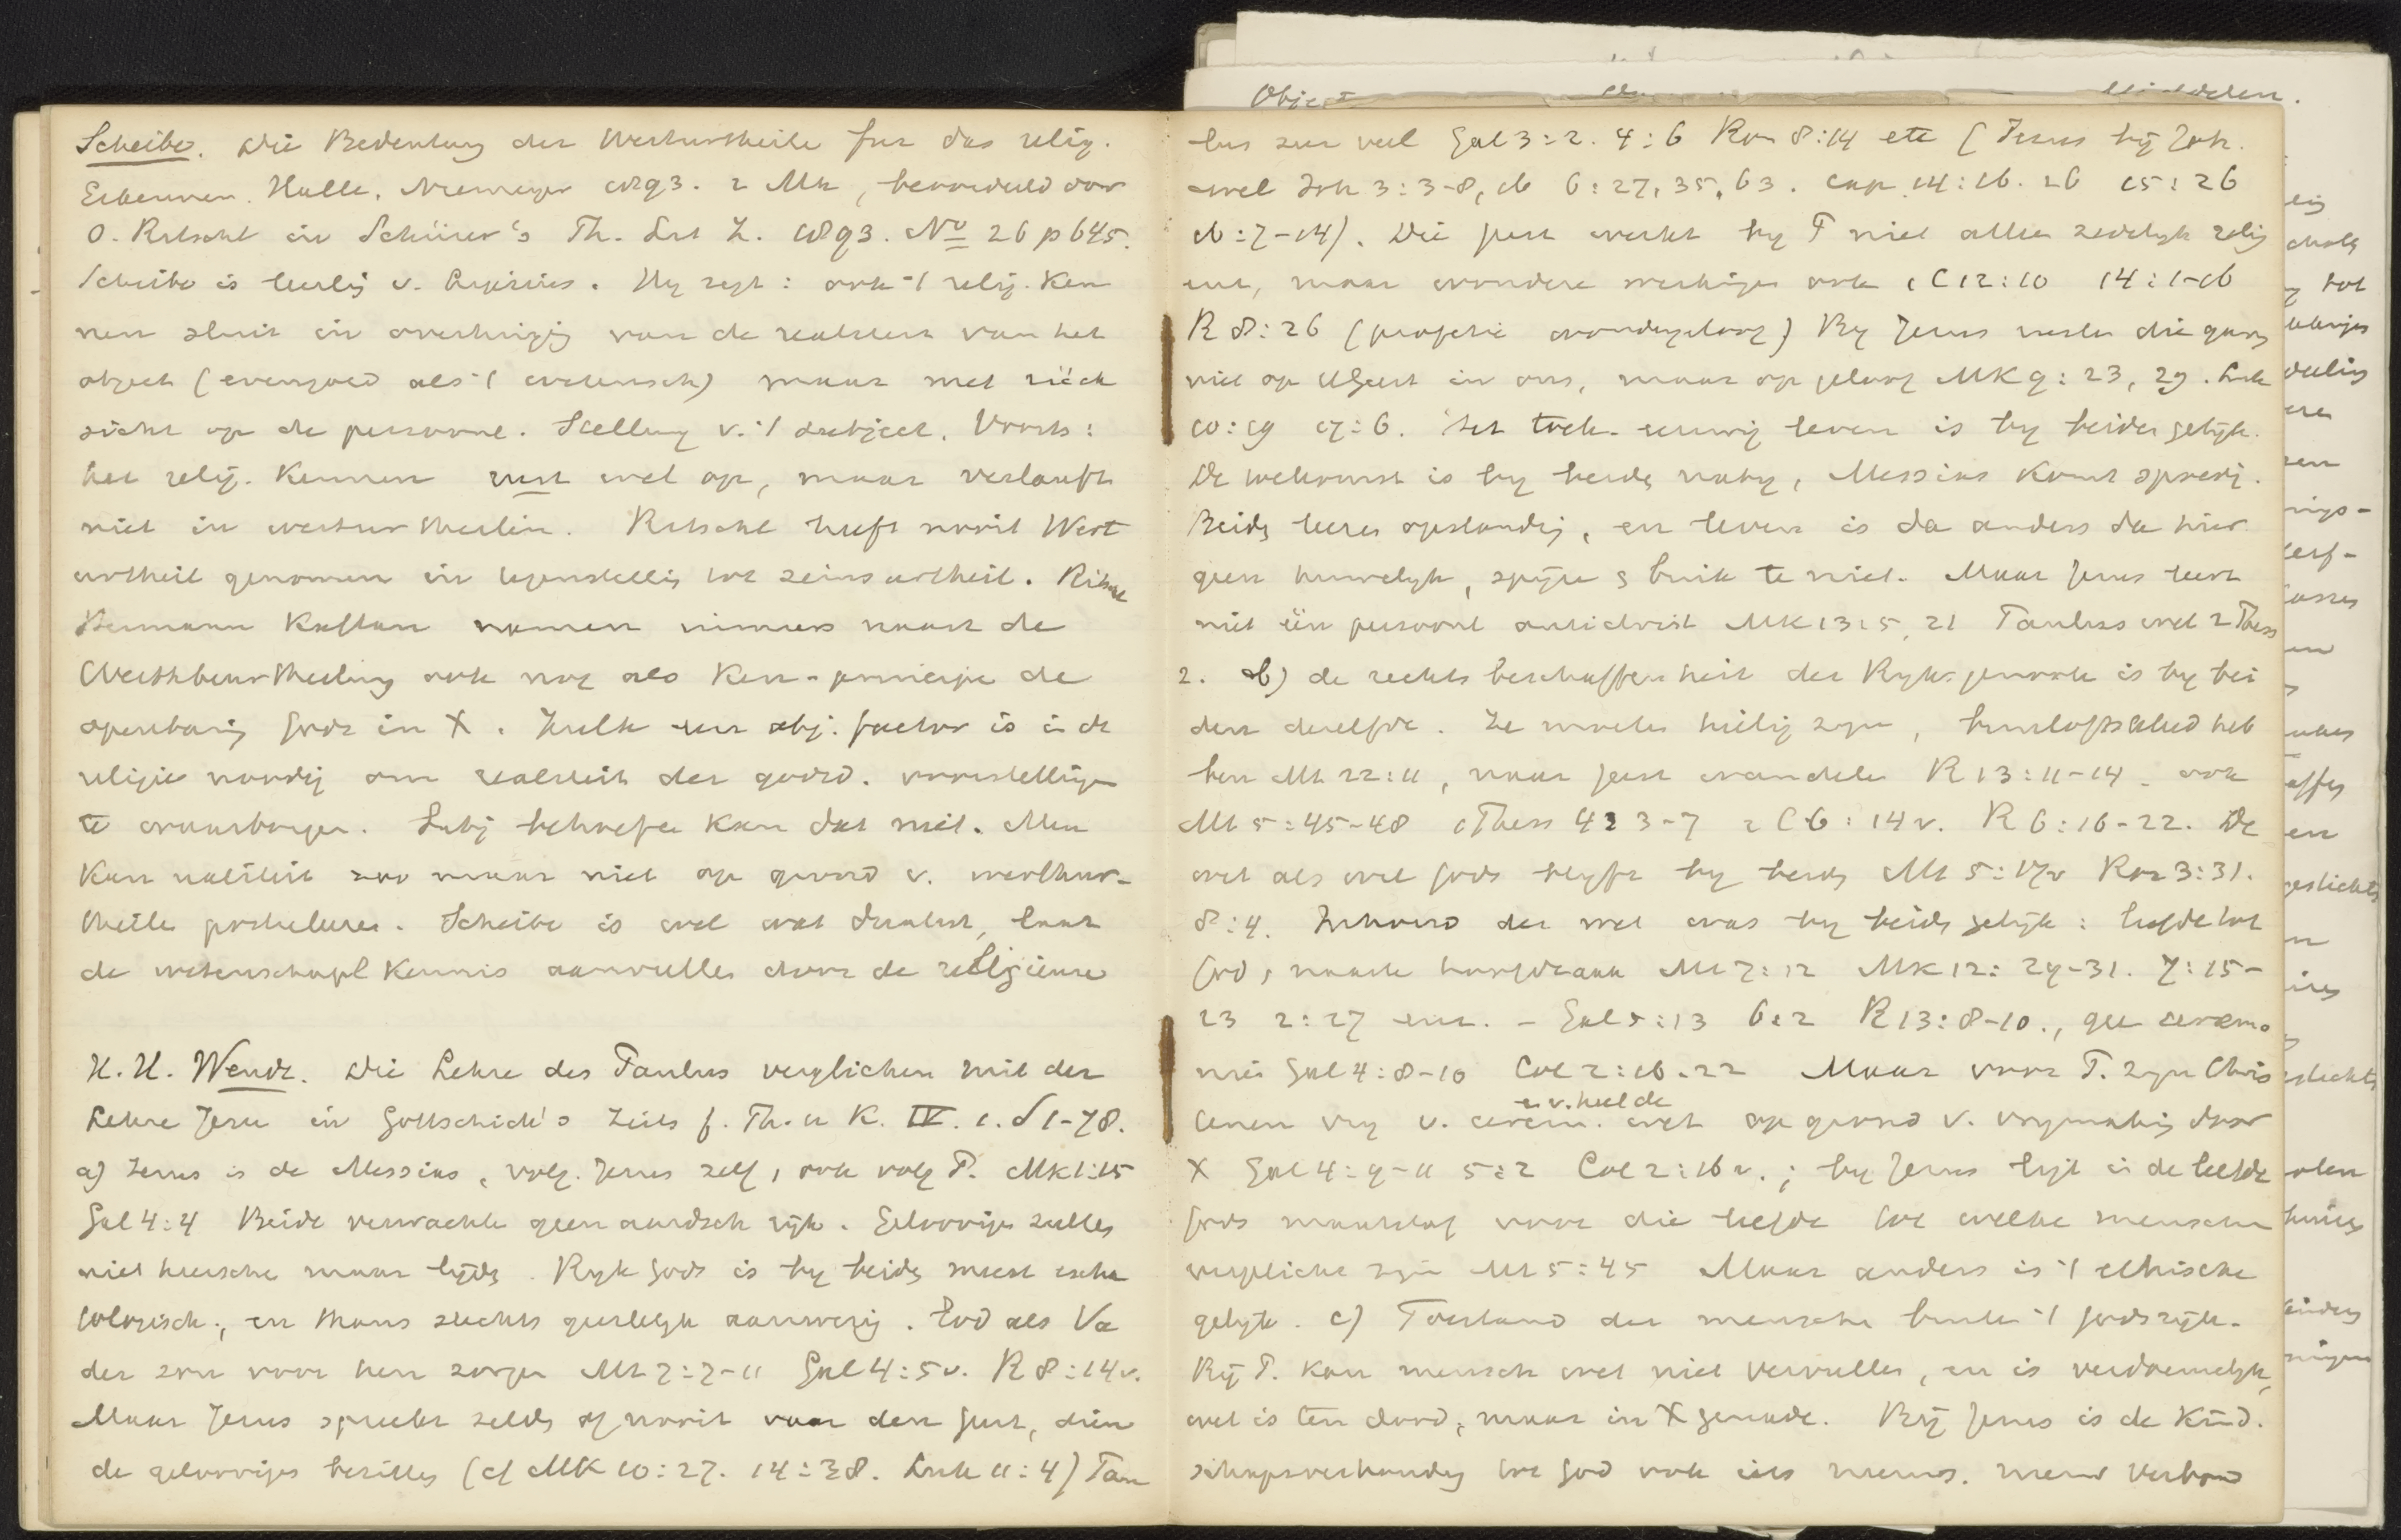 Scheibe. Die Bedeutung der Werturtheile fur das relig.
Erkennen. Halle. Niemeyer 1893. 2 Mk, beoordeeld door
O. Ritschl in Schürer's Th. Lit Z. 1893. No 26 p 645.
Scheibe is leerlig v. Lipsius. Hy zegt: ook 't relig. Ken
nen sluit in overtuigig van de realiteit van het
object (evengoed als 't wetensch) maar met rück
sicht op de persoonl. Stelling v. 't subject. Voorts:
het relig. Kennen rust wel op, maar verlauft
niet in werturtheilen. Ritschl heeft nooit Wert
urtheil genomen in tegenstellig tot seinsurtheil. Ritschl
Hermann Kaftan nemen immers naast de
Werthbeurtheilung ook nog als Ken-principe de
openbarig Gods in X. Zulk een obj. factor is i de
religie noodig om realiteit der godsd. voorstellige
te waarborgen. Subj behoefte kan dat niet. Men
kan realiteit zoo maar niet op grond v. werthur-
theile postuleren. Scheibe is wel wat dualist, laat
de wetenschapl kennis aanvulles door de religieuse
H. H. Wendt. Die Lehre des Paulus verglichen mit der
Lehre Jesu in Gottschick's Zeits f. Th. u K. IV. 1. S 1-78.
a) Jezus is de Messias, volg. Jezus zelf, ook volg P. Mk 1:15
Gal 4:4 Beide verwachte geen aardsch rijk. Geloovige zulles
niet heersche maar lijds. Ryk Gods is by beids meest escha
tologisch, en thans slechts geestelyk aanwezig. God als Va
der zou voor hen zorge Mt 7:7-11 Gal 4:5v. R 8:14v.
Maar Jezus spreekt zelds of nooit van den Geest, dien
de geloovige bezittes (cf Mk 10:27. 14:38. Luk 11:4) Pau
lus zeer veel Gal 3:2. 4:6 Rom 8:14 etc (Jezus bij Joh.
wel Joh 3:3-8, 16 6:27, 35, 63. cap 14:16. 26 15:26
16:7-14). Die geest werkt by P niet allee zedelyk relig
enz, maar wondere werkinge ook 1 C 12:10 14:1-16
R 8:26 (profetie wondergeloof) By Jezus rusten die gans
niet op H Geest in ons, maar op geloof Mk 9:23, 29. Luk
10:19 17:6. Het toek. eeuwig leven is by beides gelijk.
De wekomst is by beids naby, Messias komt spoedig.
Beids leeres opstandig, en leven is da anders da hier
geen huwelyk, spijze & buik te niet. Maar Jezus leert
niet één persoonl antichrist Mk 13:5, 21 Paulus wel 2 Thess
2. b) de rechte beschaffenheit der Ryksgenoote is by bei
den dezelfde. Ze moetes heilig zyn, bruiloftskleed heb
ben Mt 22:11, naar geest wandele R 13:11-14 - ook
Mt 5:45-48 1 Thess 4: 3-7 2 C 6:14v. R 6:16-22. De
wet als wet Gods blyft by beids Mt 5:17v Rom 3:31.
8:4. Inhoud der wet was by beids gelijk: liefde tot
God, naaste hoofdzaak Mt 7:12 Mk 12:29-31. 7:15-
23 2:27 enz. - Gal 5:13 6:2 R 13:8-10., gee ceremo
nie Gal 4:8-10 Col 2:16-22 Maar voor P. zyn Chris
e. v. heel de
tenen vry v. cerem. wet op grond v. vrymakig door
X Gal 4:9-11 5:2 Col 2:16v.; by Jezus ligt i de liefde
Gods maatstaf voor die liefde tot welke menschen
verplicht zyn Mt 5:45 Maar anders is 't ethische
gelijk. c) Toestand der mensche buite 't Godsrijk.
Bij P. kan mensch wet niet vervulles, en is verdoemelyk,
wet is ten dood, maar in X genade. Bij Jezus is de Kind.
schapsverhoudig tot God ook iets nieuws. nieuw Verbond